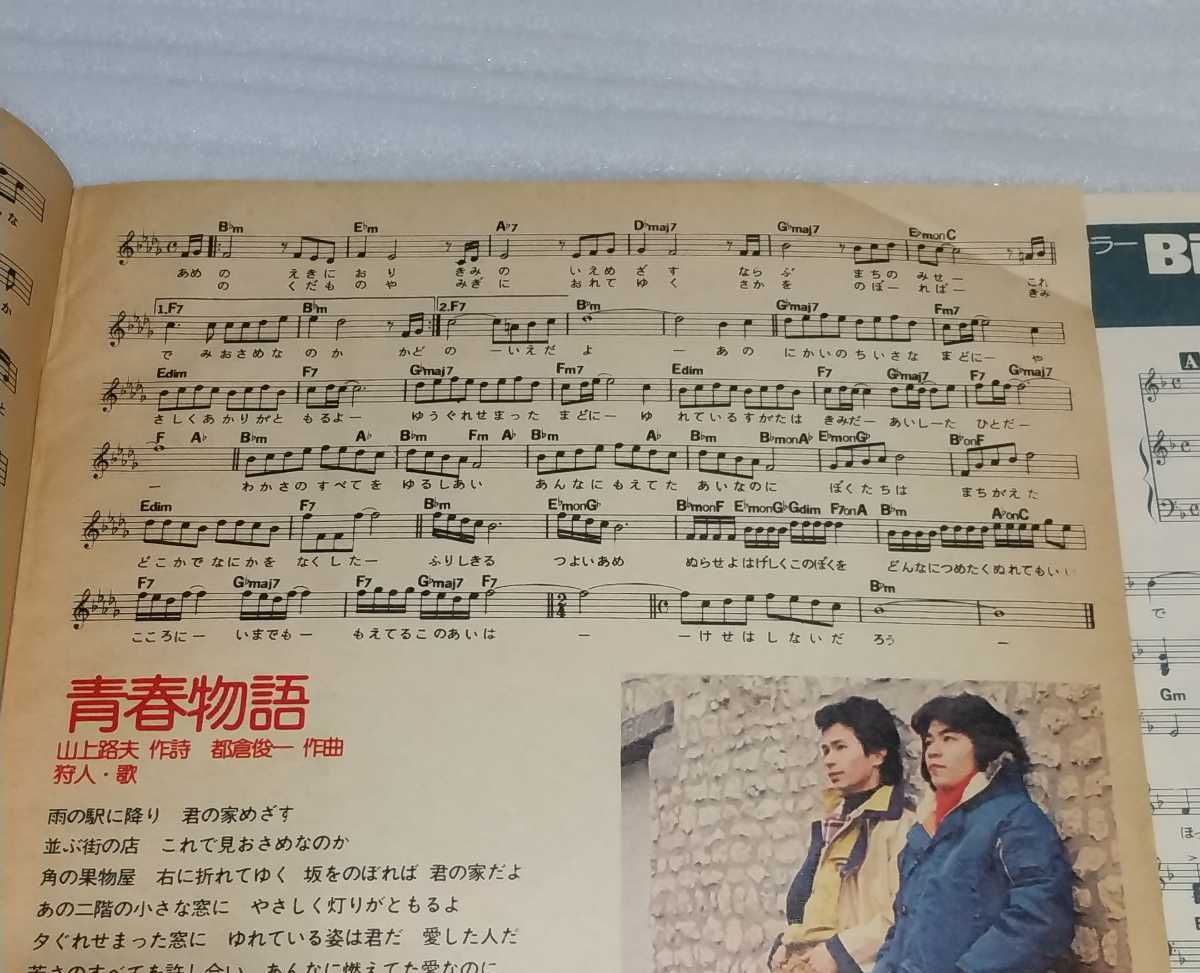 B♭m E♭m A♭7 D♭maj7 G♭maj7 E♭monC
あめの えきに おり きみの いえめ ざす ならぶ まちの みせー これ
の くだも のや みぎに おれて ゆく さかを のぼー ればー きみ
1.F7 B♭m 2.F7 B♭m G♭maj7 Fm7
で みおさめな のか かどの ーいえだ よ ー あの にかいのちいさな まどにー や
Edim F7 G♭maj7 Fm7 Edim F7 G♭maj7 F7 G♭maj7
さしくあかりがと もるよー ゆうぐれせまった まどにー ゆ れているすがたは きみだー あいしーた ひとだー
F A♭ B♭m A♭ B♭m Fm A♭ B♭m A♭ B♭m B♭monA♭ E♭monG♭ B♭onF
ー わかさの すべてを ゆるしあい あんなに もえてた あいなのに ぼくたちは まちがえた
Edim F7 B♭m E♭monG♭ B♭monF E♭monG♭ Gdim F7onA B♭m A♭onC
どこかで なにかを なくしたー ふりしきる つよいあめ ぬらせよはげしくこのぼくを どんなにつめたくぬれてもいい
F7 G♭maj7 F7 G♭maj7 F7 B♭m
こころにー いまでもー もえてるこのあいは ー ーけせはしないだ ろう ー
青春物語
山上路夫 作詩 都倉俊一 作曲
狩人・歌
雨の駅に降り 君の家めざす
並ぶ街の店 これで見おさめなのか
角の果物屋 右に折れてゆく 坂をのぼれば 君の家だよ
あの二階の小さな窓に やさしく灯りがともるよ
夕ぐれせまった窓に ゆれている姿は君だ 愛した人だ
若さのすべてを許し合い あんなに燃えてた愛なのに
な
か
と
ラー
Bi
A
で
Gm
ほっ